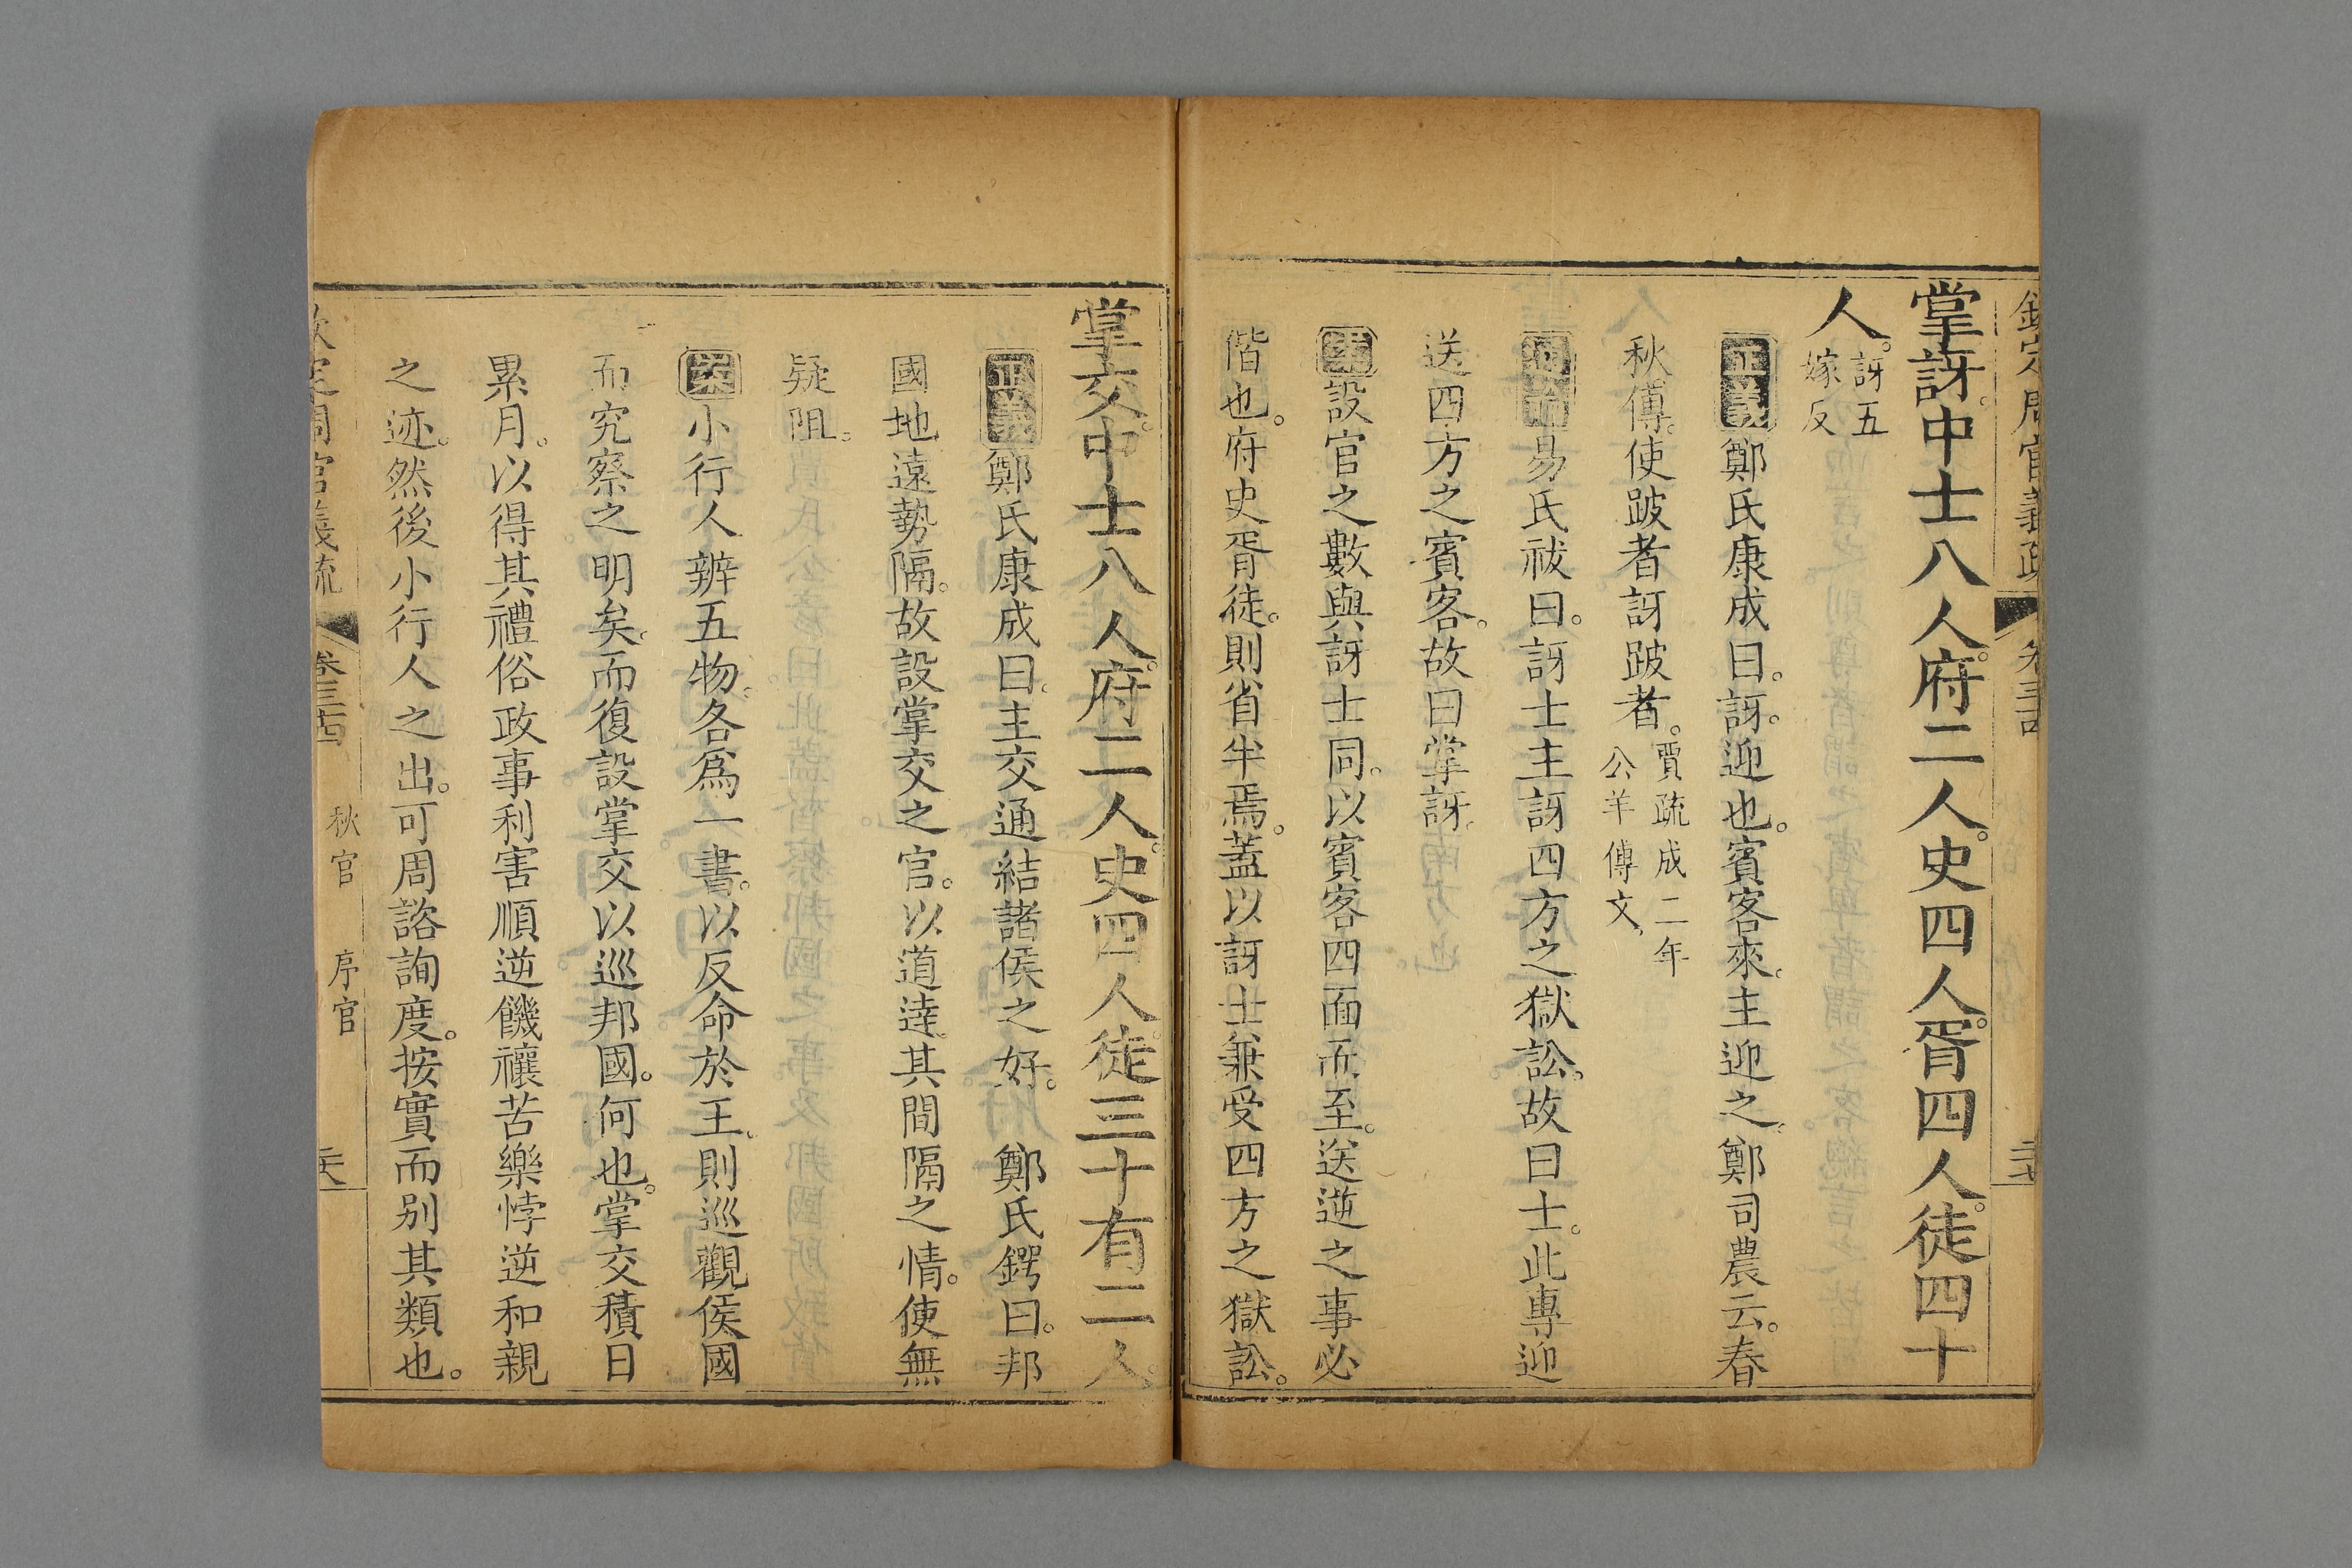 欽定周官義疏 卷三十四 三七
掌訝。中士八人。府二人。史四人。胥四人。徒四十
人。訝五嫁反
正義鄭氏康成曰。訝。迎也。賓客來。主迎之。鄭司農云。春
秋傳。使跛者訝跛者。賈疏成二年公羊傳文。
通論易氏祓曰。訝士主訝四方之獄訟。故曰士。此專迎
送四方之賓客。故曰掌訝。
案設官之數與訝士同。以賓客四面而至。送逆之事必
偕也。府史胥徒。則省半焉。蓋以訝士兼受四方之獄訟。
掌交。中士八人。府二人。史四人。徒三十有二人。
正義鄭氏康成曰。主交通結諸侯之好。 鄭氏鍔曰。邦
國地遠勢隔。故設掌交之官。以道達其間隔之情。使無
疑阻。
案小行人辨五物。各爲一書。以反命於王。則巡觀侯國
而究察之明矣。而復設掌交以巡邦國。何也。掌交積日
累月。以得其禮俗政事利害順逆饑禳苦樂悖逆和親
之迹。然後小行人之出。可周諮詢度。按實而别其類也。
欽定周官義疏 卷三十四 秋官 序官 六